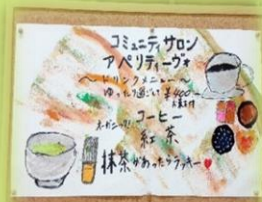 コミュニティサロン
アペリティーヴォ
〜ドリンクメニュー〜
ゆったり過ごして ¥400
お菓子付
オーガニック!! コーヒー
紅茶
抹茶があったらラッキー♥